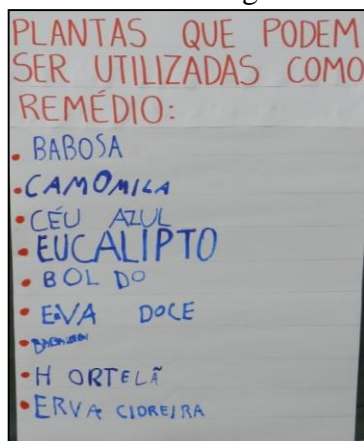 PLANTAS QUE PODEM
SER UTILIZADAS COMO
REMÉDIO:
• BABOSA
• CAMOMILA
• CÉU AZUL
• EUCALIPTO
• BOLDO
• EVA DOCE
•
• HORTELÃ
• ERVA CIDREIRA